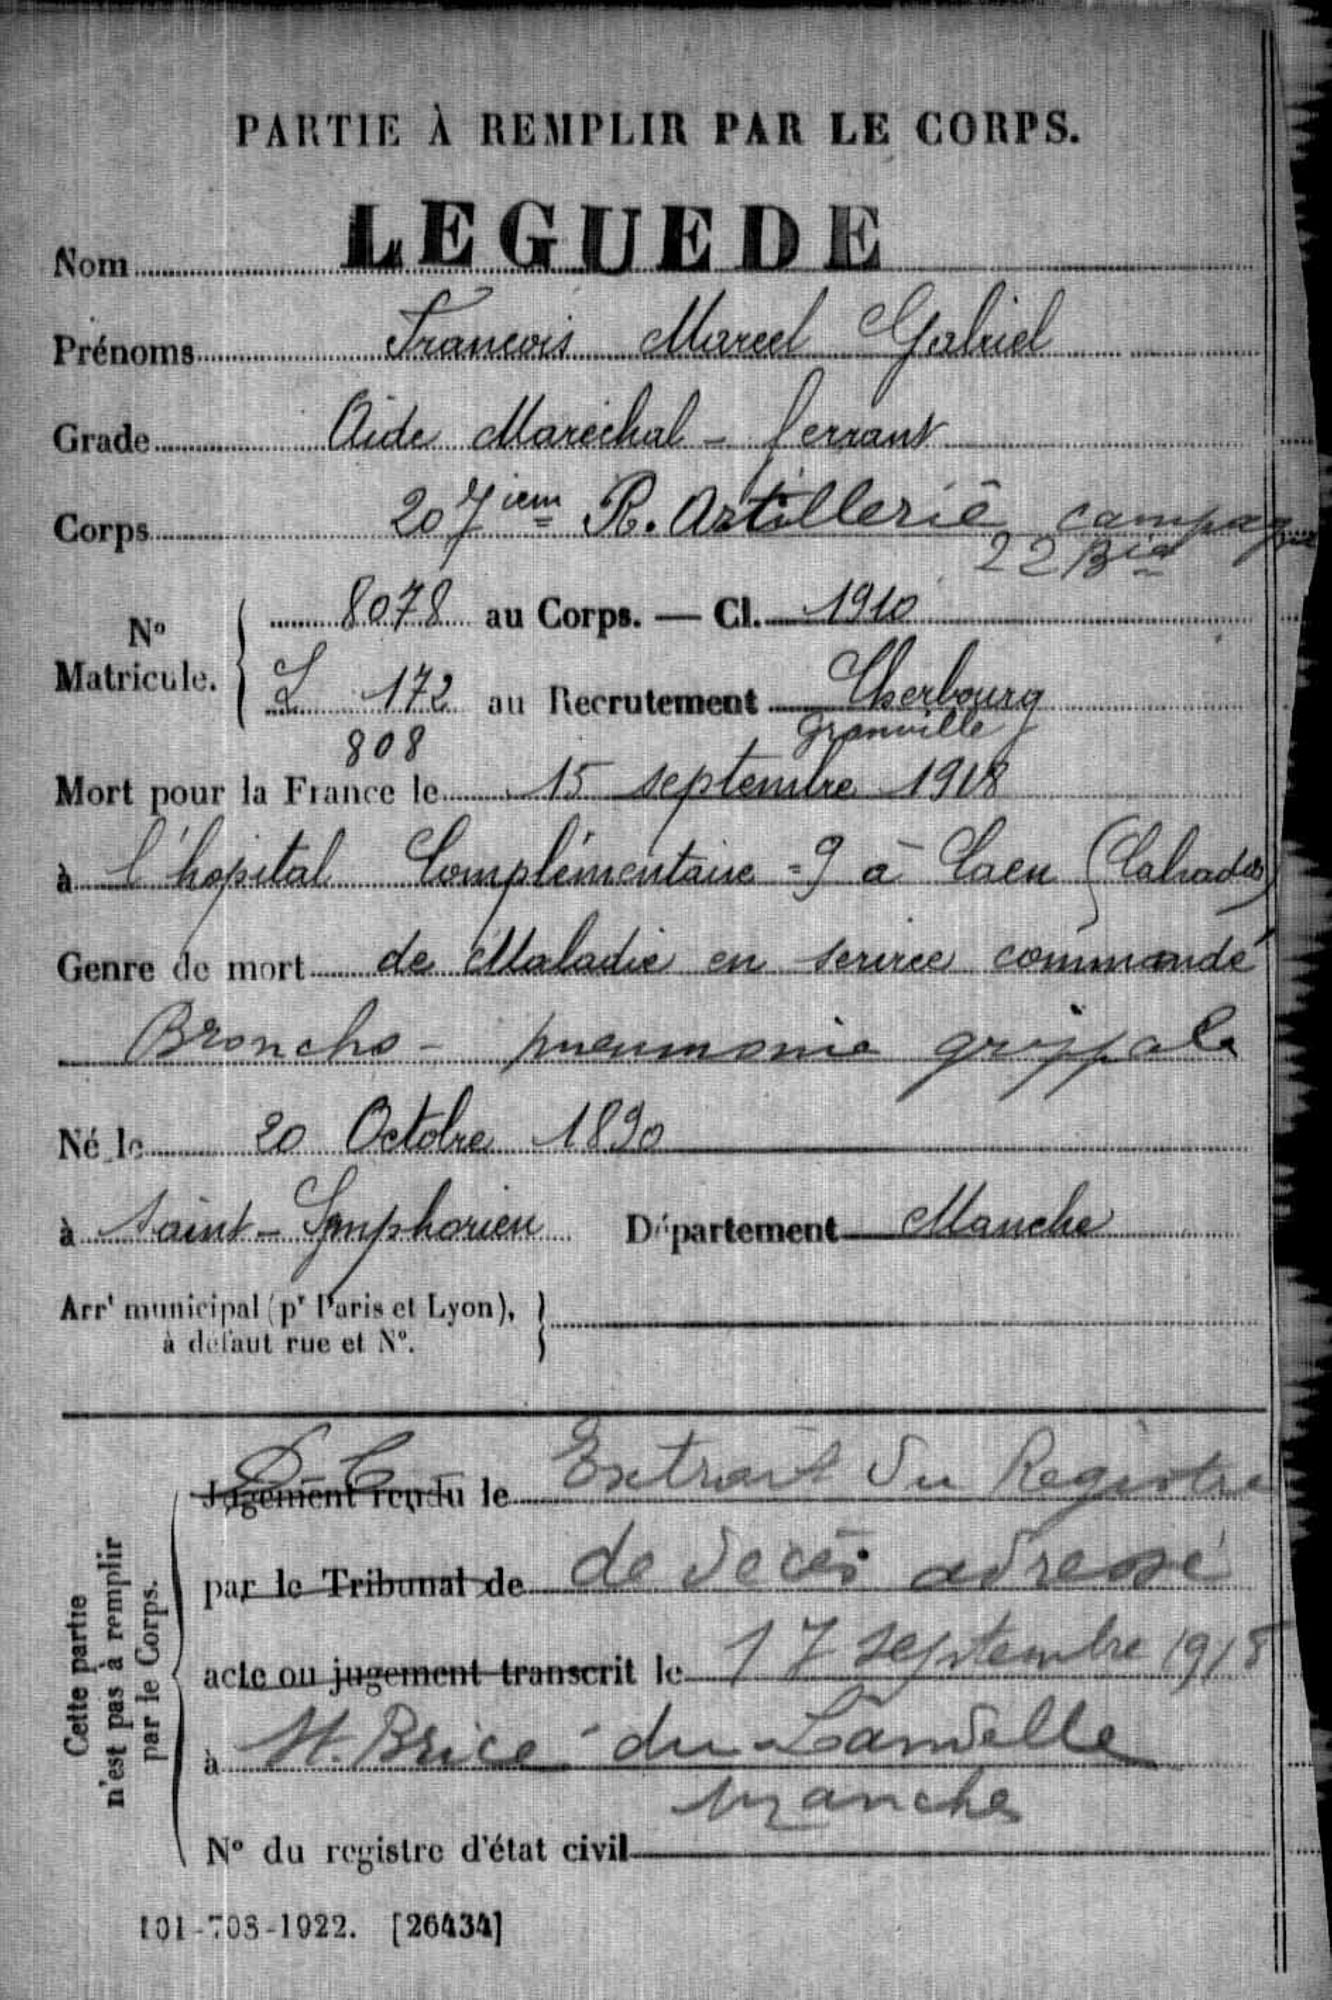 PARTIE À REMPLIR PAR LE CORPS.
Nom LEGUEDE
Prénoms Francois Marcel Gabriel
Grade Aide Maréchal-ferrant
Corps 207iem R. Artillerie campagne
22 Bie
No Matricule. 8078 au Corps. — Cl. 1910
L 172 au Recrutement Cherbourg
808 Granville
Mort pour la France le 15 septembre 1918
à l'hopital Complémentaire 9 à Caen (Calvados)
Genre de mort de Maladie en service commandé
Broncho-pneumonie grippale
Né le 20 Octobre 1890
à Saint-Symphorien Département Manche
Arrt municipal (pr Paris et Lyon),
à défaut rue et N°.
Jugement rendu le Extrait du Registre
par le Tribunal de de décès adressé
acte ou jugement transcrit le 17 septembre 1918
à St. Brice du Landelle
Manche
N° du registre d'état civil
Cette partie
n'est pas à remplir
par le Corps.
101-708-1922. [26434]